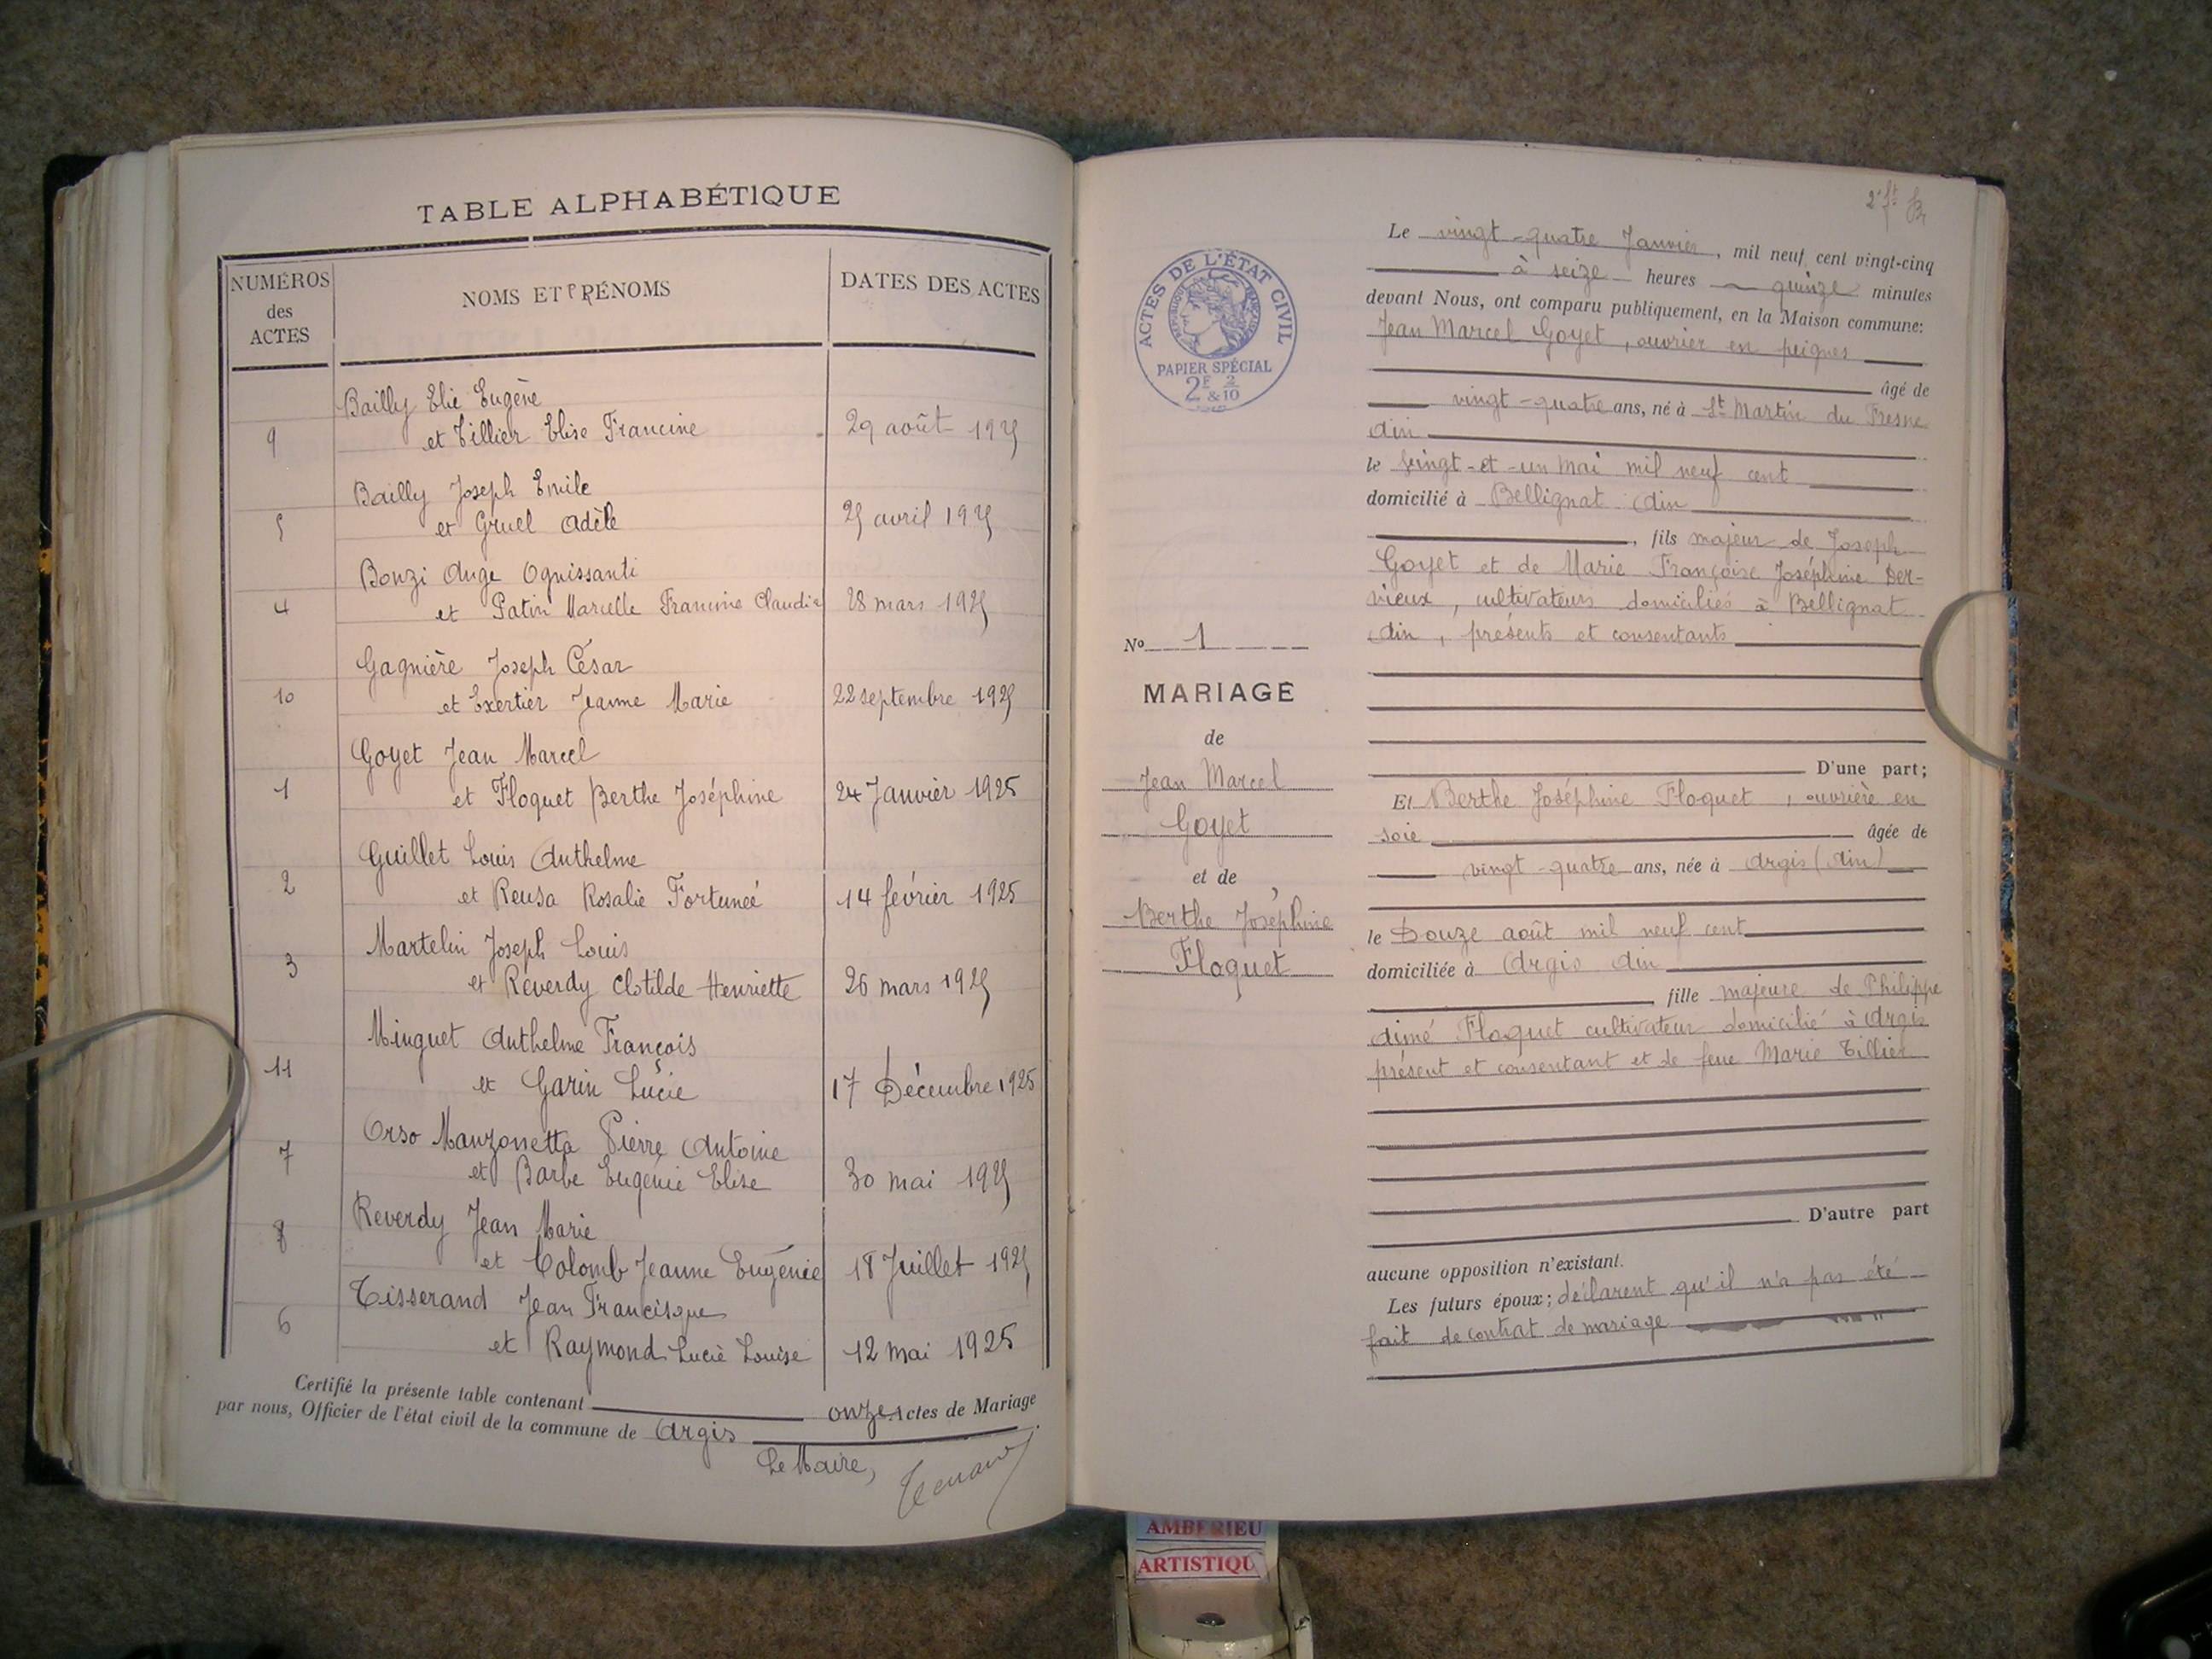 TABLE ALPHABÉTIQUE
NUMÉROS des ACTES
NOMS ET PRÉNOMS
DATES DES ACTES
Bailly Elie Eugène
9 et Tillier Elise Francine 29 août 1925
Bailly Joseph Emile
5 et Gruel Adèle 25 avril 1925
Bonzi Ange Ognissanti
4 et Patin Marcelle Francine Claudia 28 mars 1925
Gagnière Joseph César
10 et Exertier Jeanne Marie 22 septembre 1925
Goyet Jean Marcel
1 et Floquet Berthe Joséphine 24 Janvier 1925
Guillet Louis Anthelme
2 et Reusa Rosalie Fortuneé 14 février 1925
Martelin Joseph Louis
3 et Réverdy Clotilde Henriette 26 mars 1925
Minguet Anthelme François
11 et Garin Lucie 17 Décembre 1925
Orso Manzonetta Pierre Antoine
7 et Barbe Eugénie Elise 30 mai 1925
Reverdy Jean Marie
8 et Colomb Jeanne Eugénie 18 Juillet 1925
Tisserand Jean Francisque
6 et Raymond Lucie Louise 12 mai 1925
Certifié la présente table contenant onze Actes de Mariage
par nous, Officier de l'état civil de la commune de Argis
Le Maire,
ACTES DE L'ÉTAT CIVIL
RÉPUBLIQUE FRANÇAISE
PAPIER SPÉCIAL
2F & 2/10
No 1
MARIAGE
de
Jean Marcel
Goyet
et de
Berthe Joséphine
Floquet
Le vingt-quatre Janvier, mil neuf cent vingt-cinq
à seize heures quinze minutes
devant Nous, ont comparu publiquement, en la Maison commune:
Jean Marcel Goyet, ouvrier en peignes
âgé de
vingt-quatre ans, né à St Martin du Fresne
Ain
le vingt-et-un Mai mil neuf cent
domicilié à Bellignat Ain
, fils majeur de Joseph
Goyet et de Marie Françoise Joséphine Der-
vieux, cultivateurs domiciliés à Bellignat
Ain, présents et consentants
D'une part;
Et Berthe Joséphine Floquet, ouvrière en
soie âgée de
vingt-quatre ans, née à Argis (Ain)
le Douze août mil neuf cent
domiciliée à Argis Ain
fille majeure de Philippe
Aimé Floquet cultivateur domicilié à Argis
présent et consentant et de feue Marie Tillier
D'autre part
aucune opposition n'existant.
Les futurs époux; déclarent qu'il n'a pas été
fait de contrat de mariage
AMBERIEU
ARTISTIQU